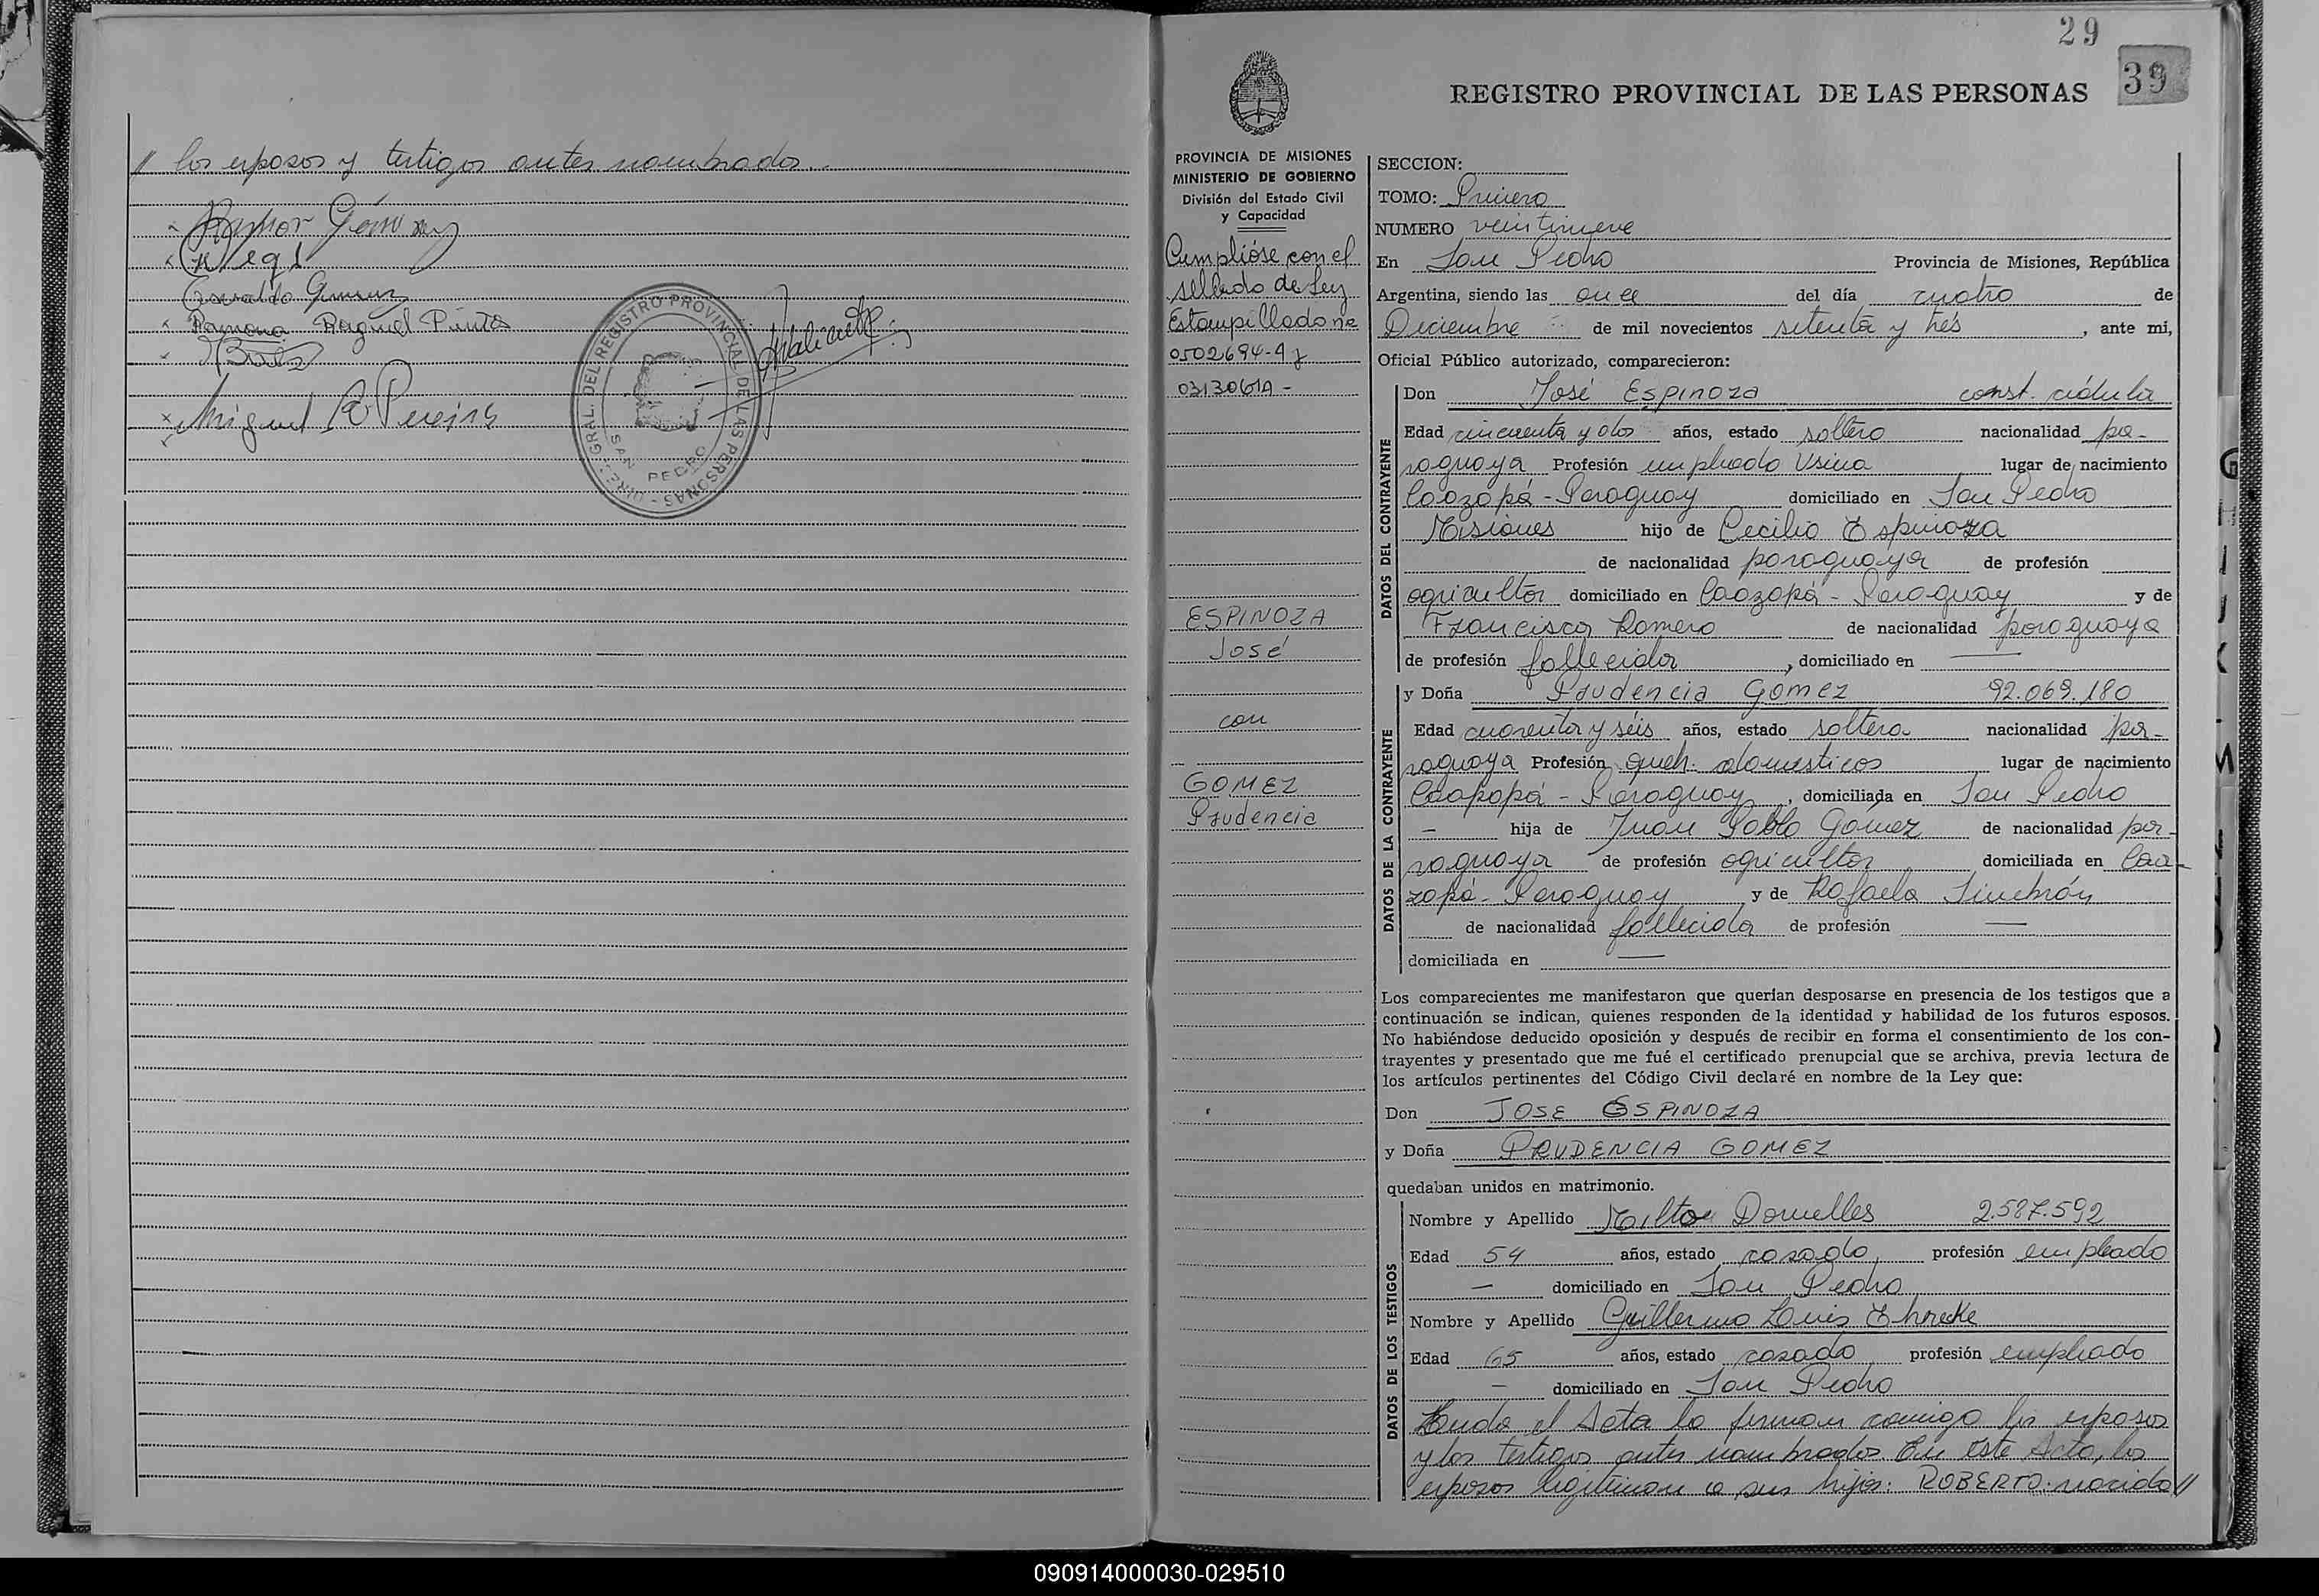 // los esposos y testigos antes nombrados.-
Ramón
Osvaldo
Ramona Raquel Pinto
Miguel A. Pereira
DIRE. GRAL. DEL REGISTRO PROVINCIAL DE LAS PERSONAS -
SAN PEDRO
29
39
REGISTRO PROVINCIAL DE LAS PERSONAS
PROVINCIA DE MISIONES
MINISTERIO DE GOBIERNO
División del Estado Civil
y Capacidad
Cumplióse con el
sellado de Ley
Estampillado nº
0502694-A y
0313061A -
ESPINOZA
José
con
GOMEZ
Prudencia
SECCION:
TOMO: Primero
NUMERO veintinueve
En San Pedro Provincia de Misiones, República
Argentina, siendo las once del día cuatro de
Diciembre de mil novecientos setenta y trés, ante mi,
Oficial Público autorizado, comparecieron:
DATOS DEL CONTRAYENTE
Don José Espinoza const. cédula
Edad cincuenta y dos años, estado soltero nacionalidad pa-
raguaya Profesión empleado Usina lugar de nacimiento
Caazapá - Paraguay domiciliado en San Pedro
Misiones hijo de Cecilio Espinoza
de nacionalidad paraguaya de profesión
agricultor domiciliado en Caazapá - Paraguay y de
Francisca Romero de nacionalidad paraguaya
de profesión fallecida, domiciliado en —
DATOS DE LA CONTRAYENTE
y Doña Prudencia Gomez 92.069.180
Edad cuarenta y séis años, estado soltera nacionalidad pa-
raguaya Profesión queh. domésticos lugar de nacimiento
Caapapá - Paraguay, domiciliada en San Pedro
— hija de Juan Pablo Gomez de nacionalidad pa-
raguaya de profesión agricultor domiciliada en Caa-
zapá - Paraguay y de Rafaela
de nacionalidad fallecida de profesión —
domiciliada en —
Los comparecientes me manifestaron que querían desposarse en presencia de los testigos que a
continuación se indican, quienes responden de la identidad y habilidad de los futuros esposos.
No habiéndose deducido oposición y después de recibir en forma el consentimiento de los con-
trayentes y presentado que me fué el certificado prenupcial que se archiva, previa lectura de
los artículos pertinentes del Código Civil declaré en nombre de la Ley que:
Don JOSE ESPINOZA
y Doña PRUDENCIA GOMEZ
quedaban unidos en matrimonio.
DATOS DE LOS TESTIGOS
Nombre y Apellido Milton Dornelles 2.587.592
Edad 54 años, estado casado profesión empleado
— domiciliado en San Pedro
Nombre y Apellido Guillermo Luis
Edad 65 años, estado casado profesión empleado
— domiciliado en San Pedro
Leída el Acta la firman conmigo los esposos
y los testigos antes nombrados. En este Acto, los
esposos legitiman a sus hijos: ROBERTO: nacido//
090914000030-029510